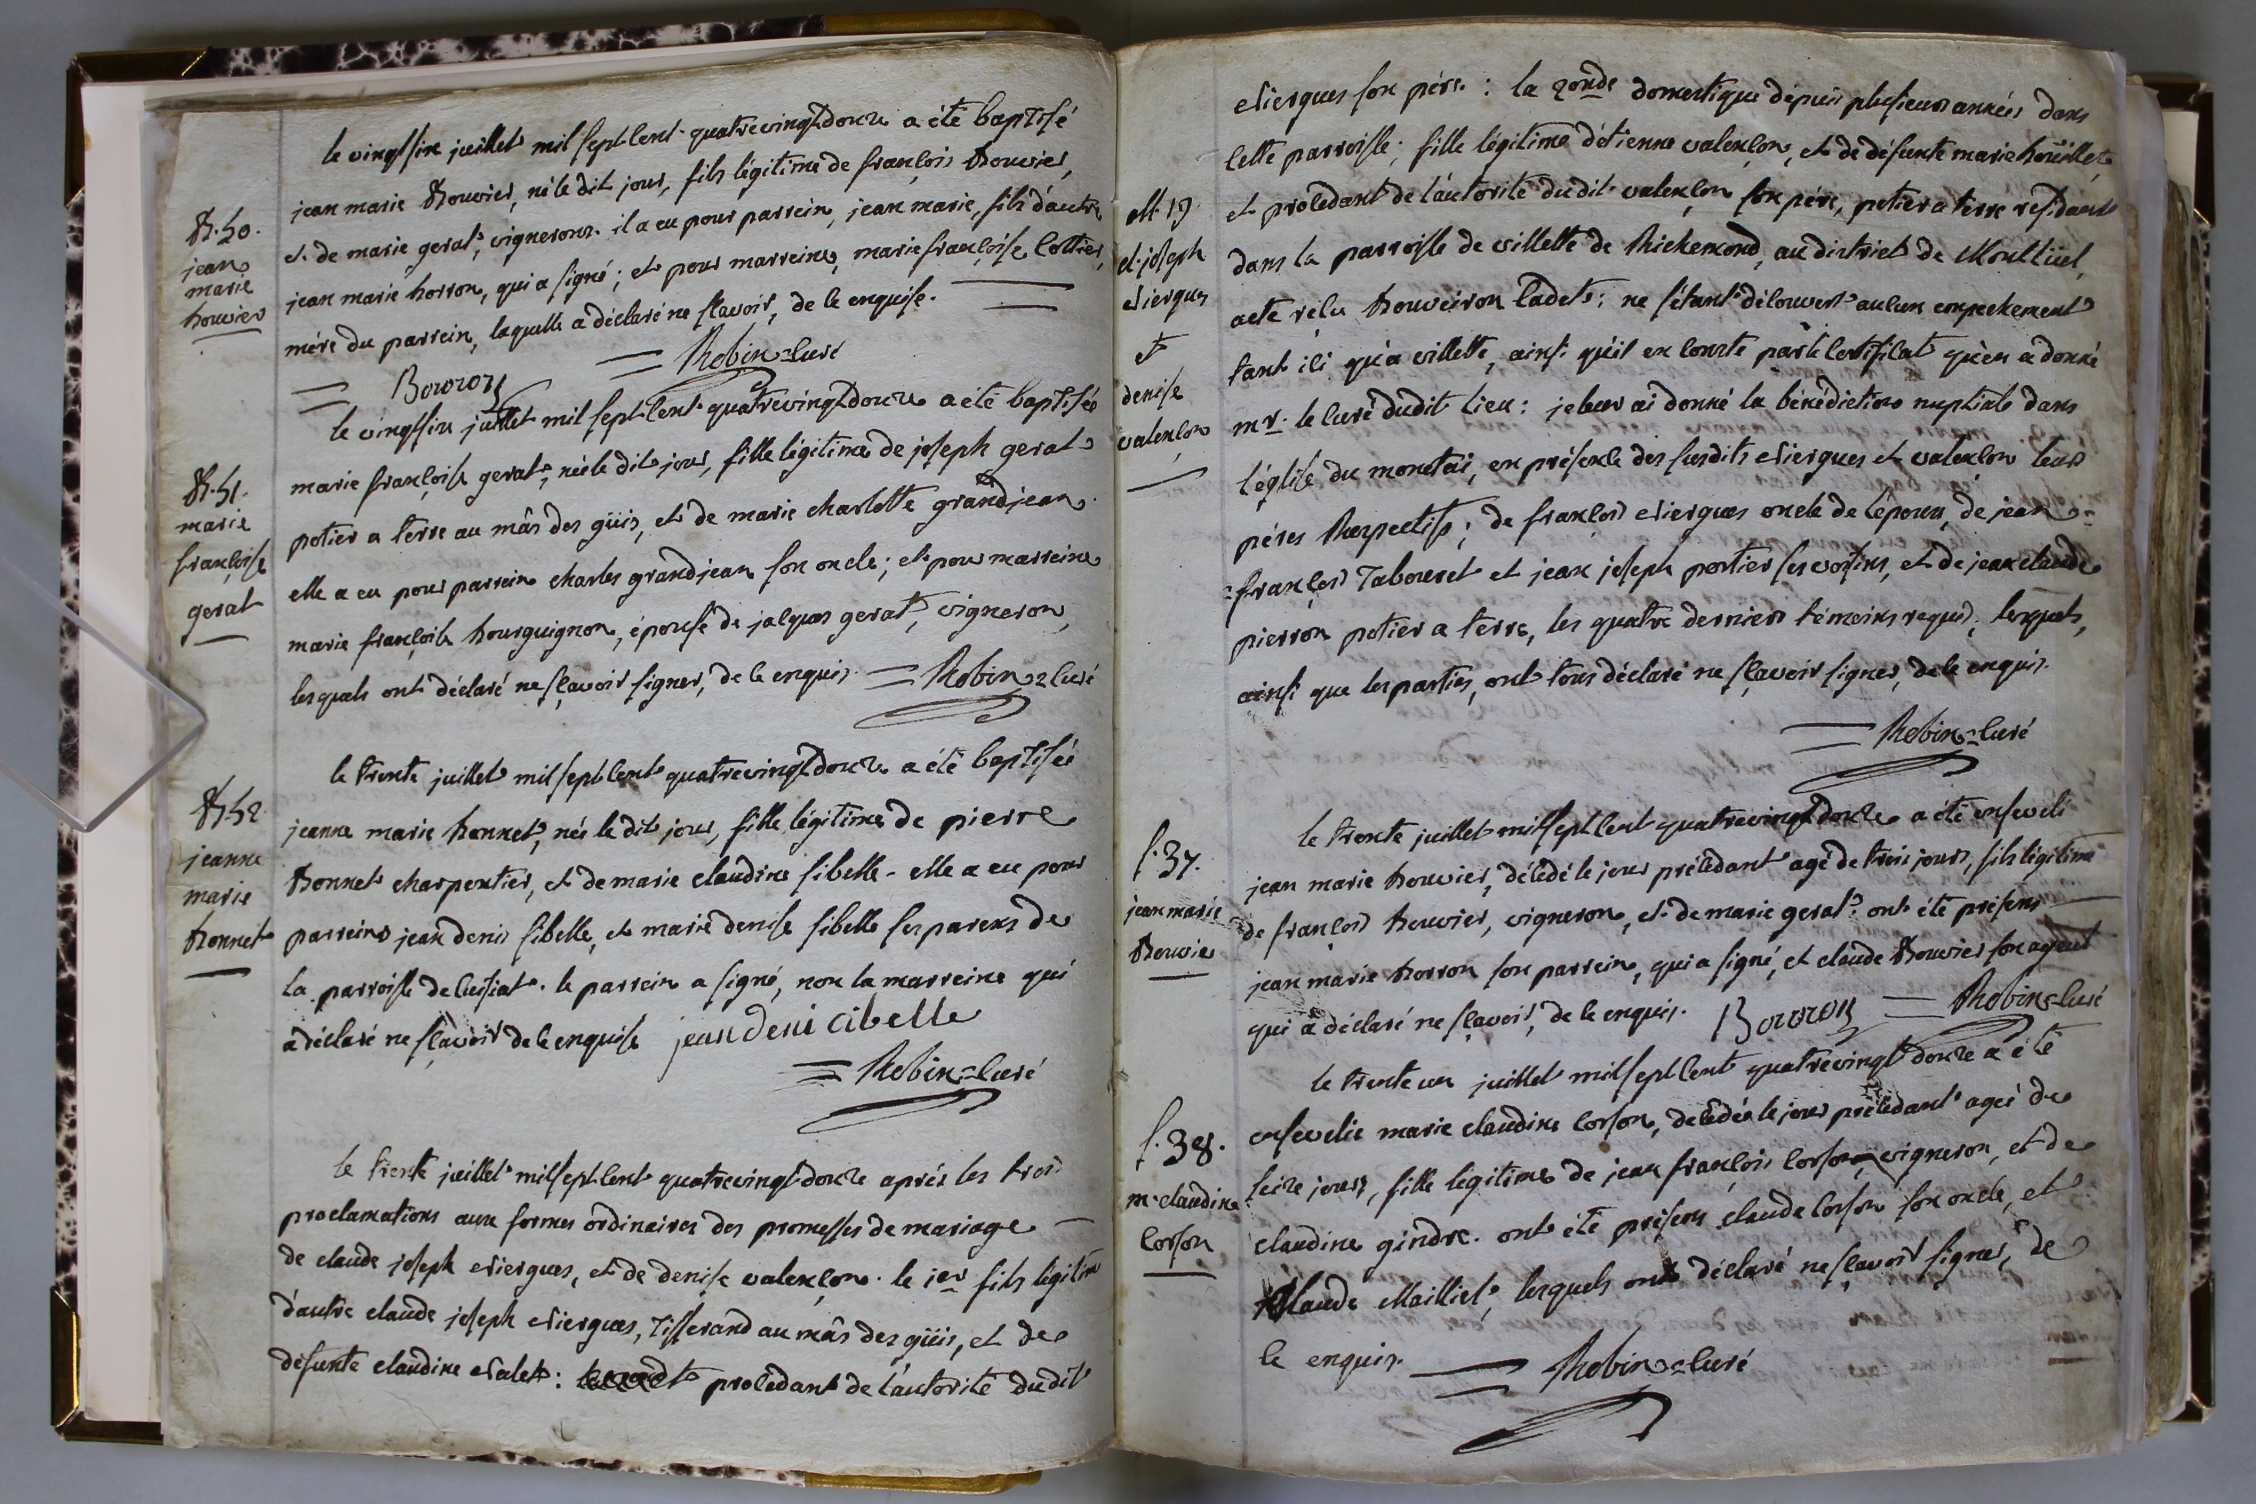 B. 50.
jean
marie
bouvier
le vingt six juillet mil sept cent quatrevingt douze a été baptisé
jean marie Bouvier, né le dit jour, fils légitime de françois Bouvier,
et de marie gerat, vignerons. il a eu pour parrein, jean marie, fils d'autre
jean marie borron, qui a signé; et pour marreine, marie françoise Cottier,
mére du parrein, laquelle a déclaré ne sçavoir, de ce enquise.
Borron Robin curé
B. 51.
marie
françoise
gerat
le vingt six juillet mil sept cent quatrevingt douze a été baptisée
marie françoise gerat, née le dit jour, fille légitime de joseph gerat
potier a terre au mâs des güis, et de marie charlotte grandjean.
elle a eu pour parrein charles grandjean son oncle; et pour marreine
marie françoise bourguignon, épouse de jacques gerat, vigneron,
lesquels ont déclaré ne sçavoir signer, de ce enquis. Robin curé
B. 52
jeanne
marie
bonnet
le trente juillet mil sept cent quatrevingt douze a été baptisée
jeanne marie bonnet, née le dit jour, fille légitime de pierre
Bonnet charpentier, et de marie claudine sibelle. elle a eu pour
parreins jean denis sibelle, et marie denise sibelle ses parens de
la parroisse de cuisiat. le parrein a signé, non la marreine qui
a déclaré ne sçavoir de ce enquise jean deni cibelle
Robin curé
le trente juillet mil sept cent quatrevingt douze aprés les trois
proclamations aux formes ordinaires des promesses de mariage
de claude joseph vierques, et de denise valençon. le 1er fils légitime
d'autre claude joseph vierques, tisserand au mâs des güis, et de
défunte claudine valet: procedant de l'autorité du dit
M. 19
cl. joseph
vierques
et
denise
valençon
vierques son pére: la 2onde domestique dépuis plusieurs années dans
cette parroisse; fille légitime d'étienne valençon, et de défunte marie boüillet
et procedant de l'autorité du dit valençon son pére, potier a terre résidant
dans la parroisse de villette de Richemond, au district de Montluel,
acte réçu bouveiron cadet: ne s'étant découvert aucun empechement
tant ici qu'a villette, ainsi qu'il en conste par le certificat qu'en a donné
mr. le curé dudit lieu: je leur ai donné la bénédiction nuptiale dans
l'église du monetai, en présence des susdits vierques et valençon leurs
péres respectifs; de françois vierques oncle de l'époux, de jean=
=françois Tabouret et jean joseph portier ses voisins, et de jean claude
pierron potier a terre, les quatre derniers témoins requis, lesquels,
ainsi que les parties, ont tous déclaré ne sçavoir signer, de ce enquis.
Robin curé
s. 37.
jean marie
Bouvier
le trente juillet mil sept cent quatrevingt douze a été enseveli
jean marie bouvier, décédé le jour précédant agé de trois jours, fils légitime
de françois bouvier, vigneron, et de marie gerat. ont été présens
jean marie borron son parrein, qui a signé, et claude Bouvier son ayeul
qui a déclaré ne sçavoir, de ce enquis. Borron Robin curé
s. 38.
m. claudine
Corson
le trente un juillet mil sept cent quatrevingt douze a été
ensevelie marie claudine corson, décédée le jour précédant agée de
seize jours, fille légitime de jean françois corson, vigneron, et de
claudine gindre. ont été présens claude corson son oncle, et
claude Mailliet, lesquels ont déclaré ne sçavoir signer, de
ce enquis. Robin curé